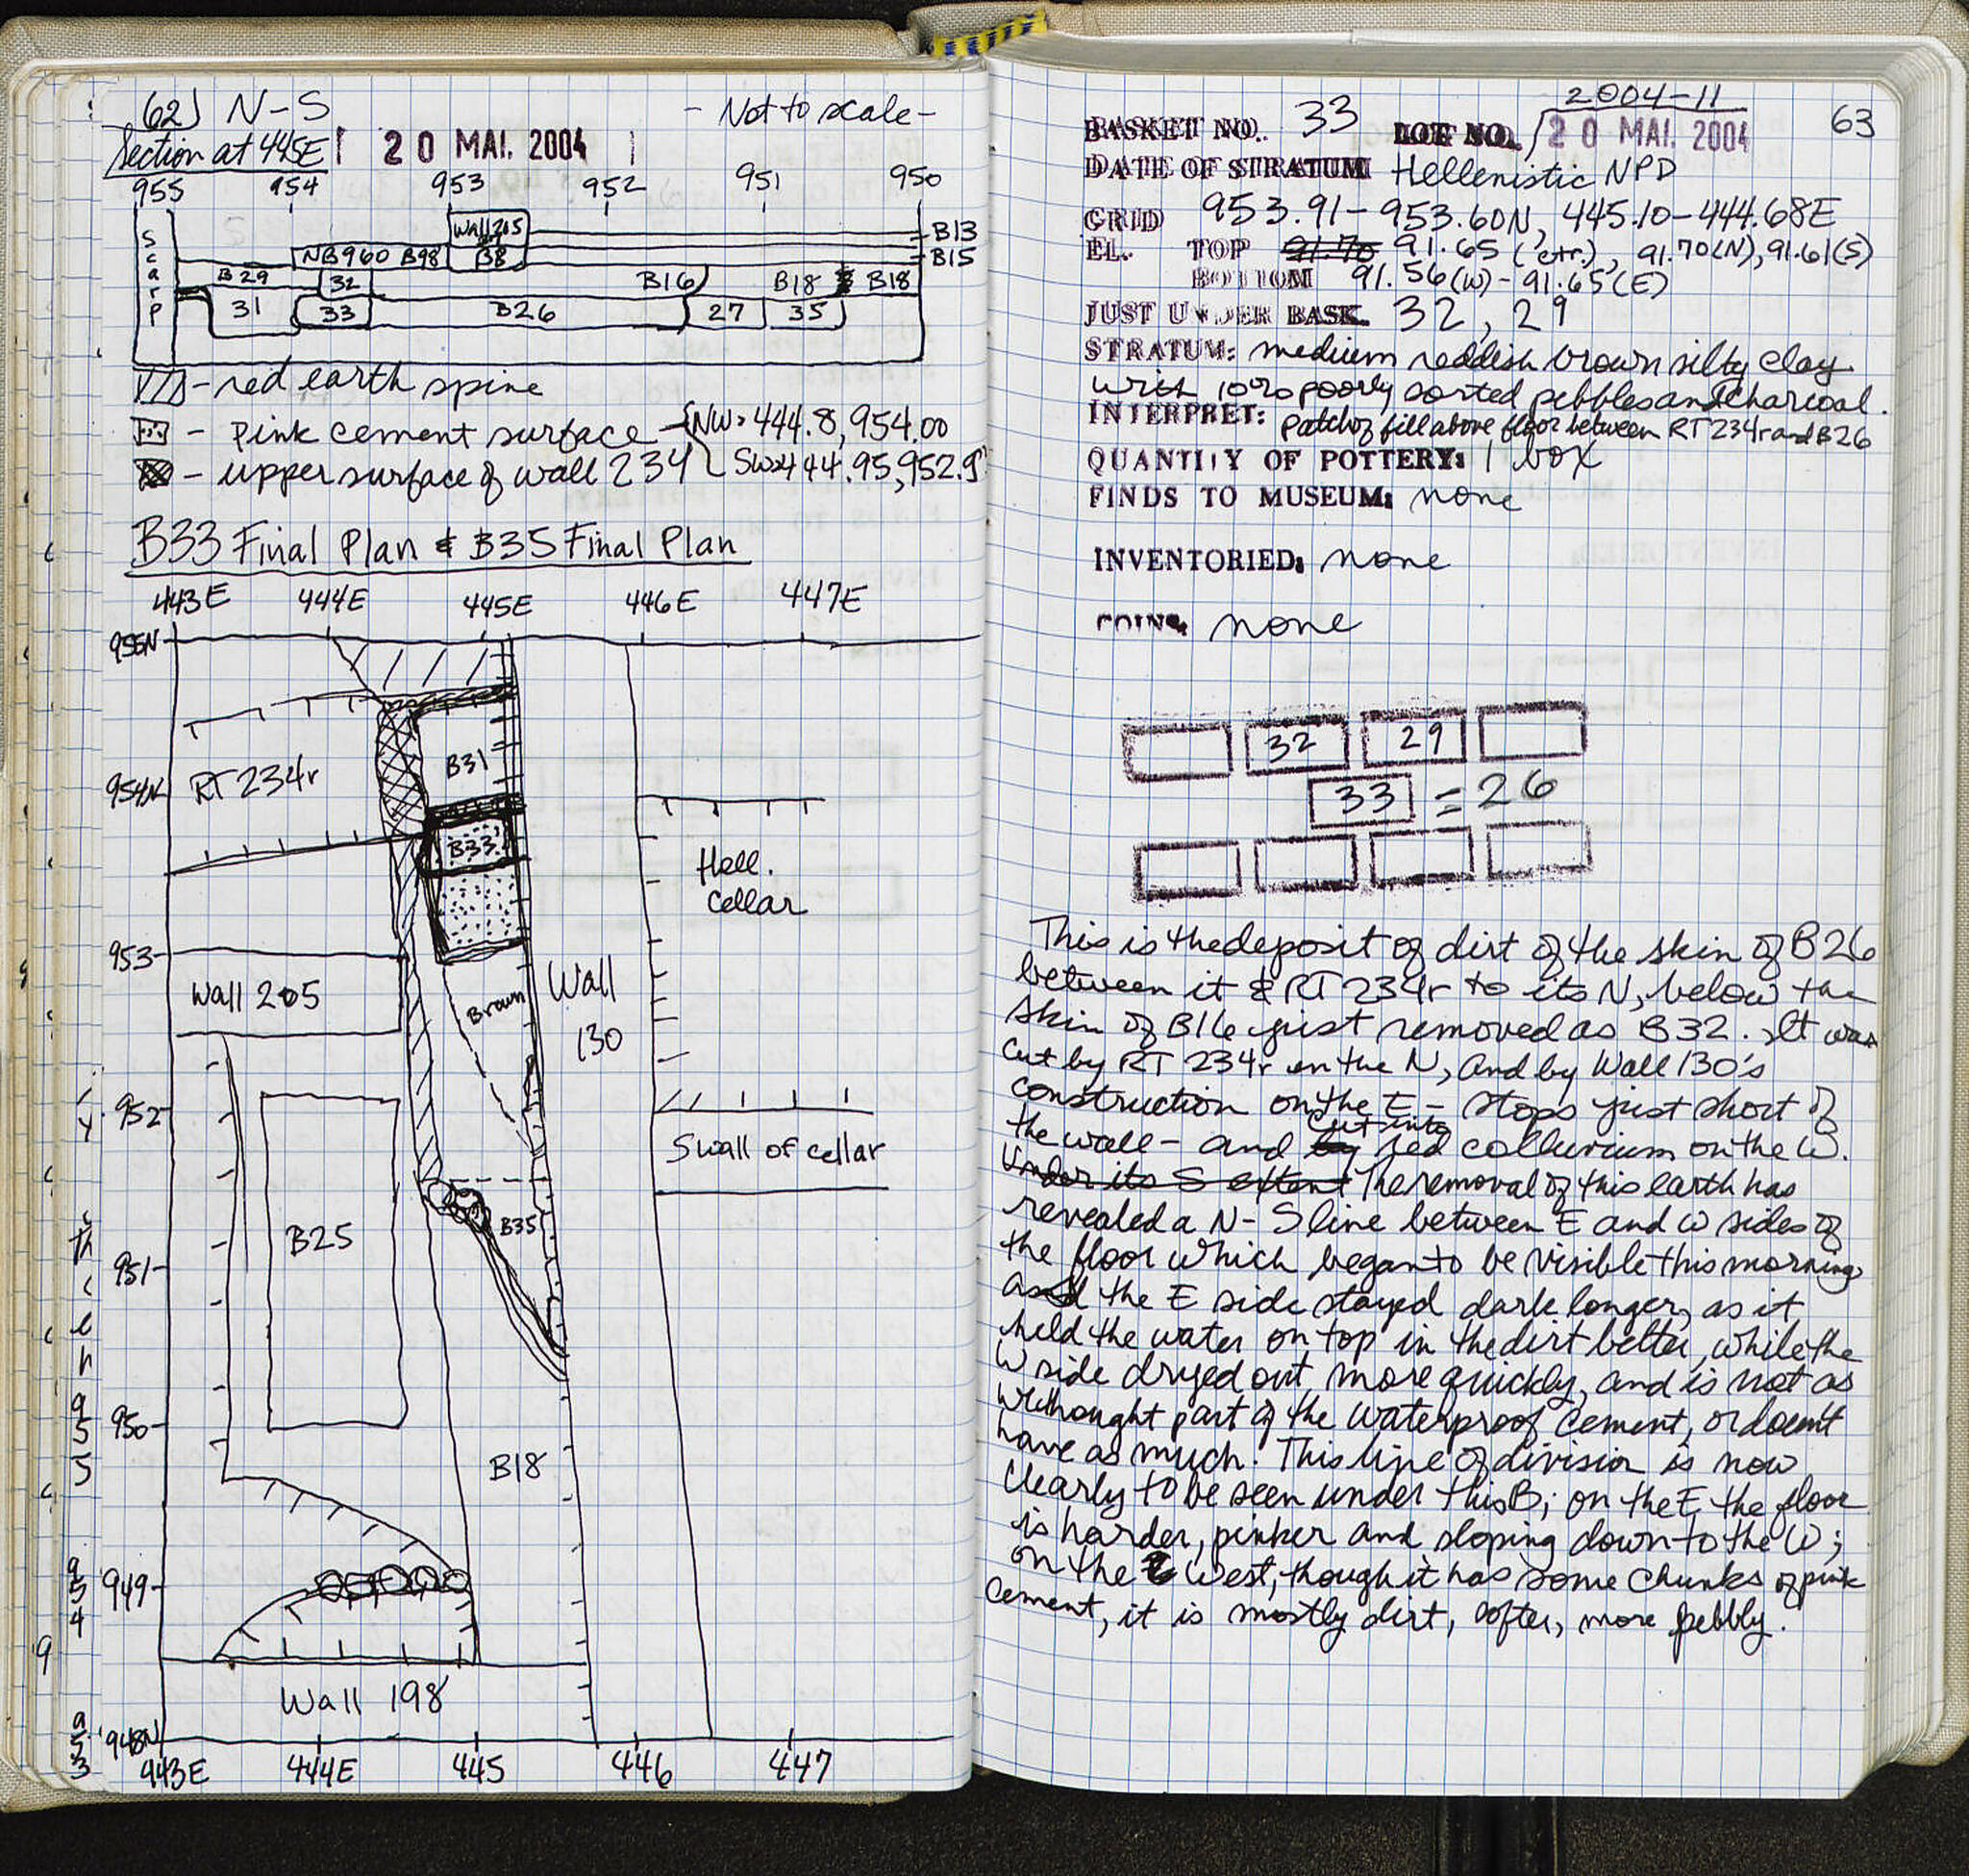 62) N-S
- Not to scale -
Section at 445E
20 MAI. 2004
955 954 953 952 951 950
Scarp
Wall 205
B13
NB960 B98 B8
B15
B29 32 B16 B18 B18
31 33 B26 27 35
- red earth spine
- pink cement surface - {NW: 444.8, 954.00
- upper surface of wall 234 SW: 444.95, 952.9
B33 Final Plan & B35 Final Plan
443E 444E 445E 446E 447E
955N
B31
RT 234r
954N
B33
Hell.
Cellar
953
Wall 205
Brown
Wall
130
952
S wall of cellar
B35
B25
951
950
B18
949
Wall 198
948N
443E 444E 445 446 447
2004-11
63
BASKET NO. 33 LOT NO. 20 MAI. 2004
DATE OF STRATUM Hellenistic NPD
GRID 953.91-953.60N, 445.10-444.68E
EL. TOP 91.70 91.65 (ctr.), 91.70(N), 91.61(S)
BOTTOM 91.56(W)-91.65(E)
JUST UNDER BASK. 32, 29
STRATUM: medium reddish brown silty clay
with 10% poorly sorted pebbles and charcoal.
INTERPRET: patch of fill above floor between RT234r and B26
QUANTITY OF POTTERY: 1 box
FINDS TO MUSEUM: none
INVENTORIED: none
COINS: none
32 29
33 = 26
This is the deposit of dirt of the skin of B26
between it & RT 234r to its N, below the
skin of B16 just removed as B32. It was
cut by RT 234r on the N, and by Wall 130's
construction on the E - stops just short of
the wall - and by cut into red colluvium on the W.
Under its S extent The removal of this earth has
revealed a N-S line between E and W sides of
the floor which began to be visible this morning
and the E side stayed dark longer, as it
held the water on top in the dirt better, while the
W side dryed out more quickly, and is not as
we thought part of the waterproof cement, or doesn't
have as much. This line of division is now
clearly to be seen under this B; on the E the floor
is harder, pinker and sloping down to the W;
on the West, though it has some chunks of pink
cement, it is mostly dirt, softer, more pebbly.